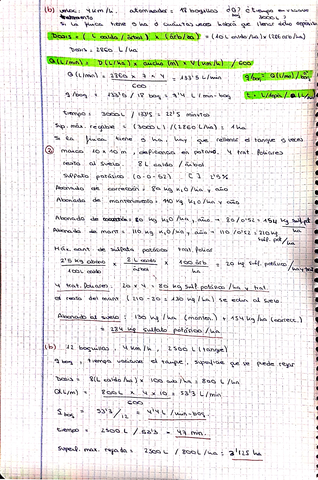 (b) veloc. 4 km/h. atomizador = 18 boquillas
Si la finca tiene 9 ha ¿cuántas veces habrá que llenar el depósito
Dosis = (L caldo / árbol) x (árb/ha) = (10L caldo/ha) x (286 árb/ha)
Dosis = 2860 L/ha
Q(L/min) = D(L/ha) x ancho (m) x V(km/h) / 600
Q(L/min) = 2860 x 7 x 4 / 600 = 133'5 L/min
q bog = Q(L/min) /
q/bog = 133'5 / 18 bog = 7'4 L/min·bog
tiempo = 3000 L / 133'5 = 22'5 minutos
Sup. máx. regable = (3000L) / (2860 L/ha) = 1 ha
Si la finca tiene 9 ha, hay que rellenar el tanque 9 veces
③ marco 10 x 10 m, deficiencia en potasio, 4 trat. foliares
resto al suelo. 8 L caldo / árbol
Sulfato potásico (0-0-52) 2'5%
Abonado de corrección = 80 kg K₂O/ha y año
Abonado de mantenimiento = 110 kg K₂O/ha y año
Abonado de 80 kg K₂O/ha, año → 80/0'52 = 154 kg sulf. pot / ha
Abonado de mant = 110 kg K₂O/ha, año → 110/0'52 = 210 kg sulf. pot / ha
Máx. cant. de sulfato potásico trat. foliar
2'5 kg abono / 100L caldo x 8 L caldo / árbol x 100 árb / ha = 20 kg sulf. potásico / ha y trat
4 trat. foliares: 20 x 4 = 80 kg sulf. potásico / ha y trat.
el resto del mant (210-80 = 130 kg/ha) se echan al suelo
Abonado al suelo = 130 kg/ha (manten.) + 154 kg/ha (correcc.)
= 284 kg sulfato potásico / ha
(b) 12 boquillas, 4 km/h, 2500 L (tanque)
q bog = tiempo vaciado el tanque, superficie que se puede regar
Dosis = 8(L caldo/ha) x 100 arb/ha = 800 L/ha
Q(L/m) = 800 L x 4 x 10 / 600 = 53'3 L/min
q bog = 53'3 / 12 = 4'4 L/min·bog.
tiempo = 2500 L / 53'3 = 47 min.
Superf. max. regada = 2500 L / 800 L/ha = 3'125 ha